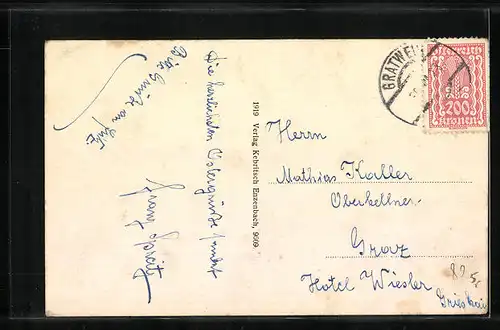 Die herzlichsten Ostergrüße sendet
Franz
1919 Verlag Kebritsch Enzenbach, 9609
GRATWEIN
200
Kronen
Herrn
Mathias Kaller
Oberkellner
Graz
Hotel Wiesler
Grieskai